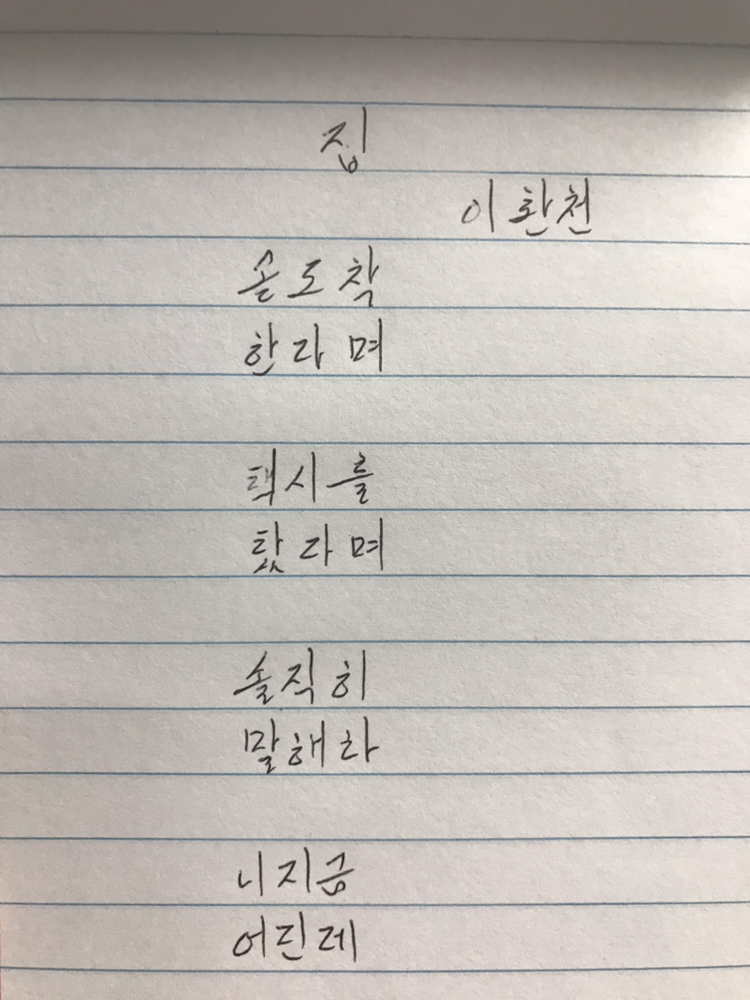 집
이환천
솔도착
한라며
택시를
탔라며
솔직히
말해라
니지금
어딘데